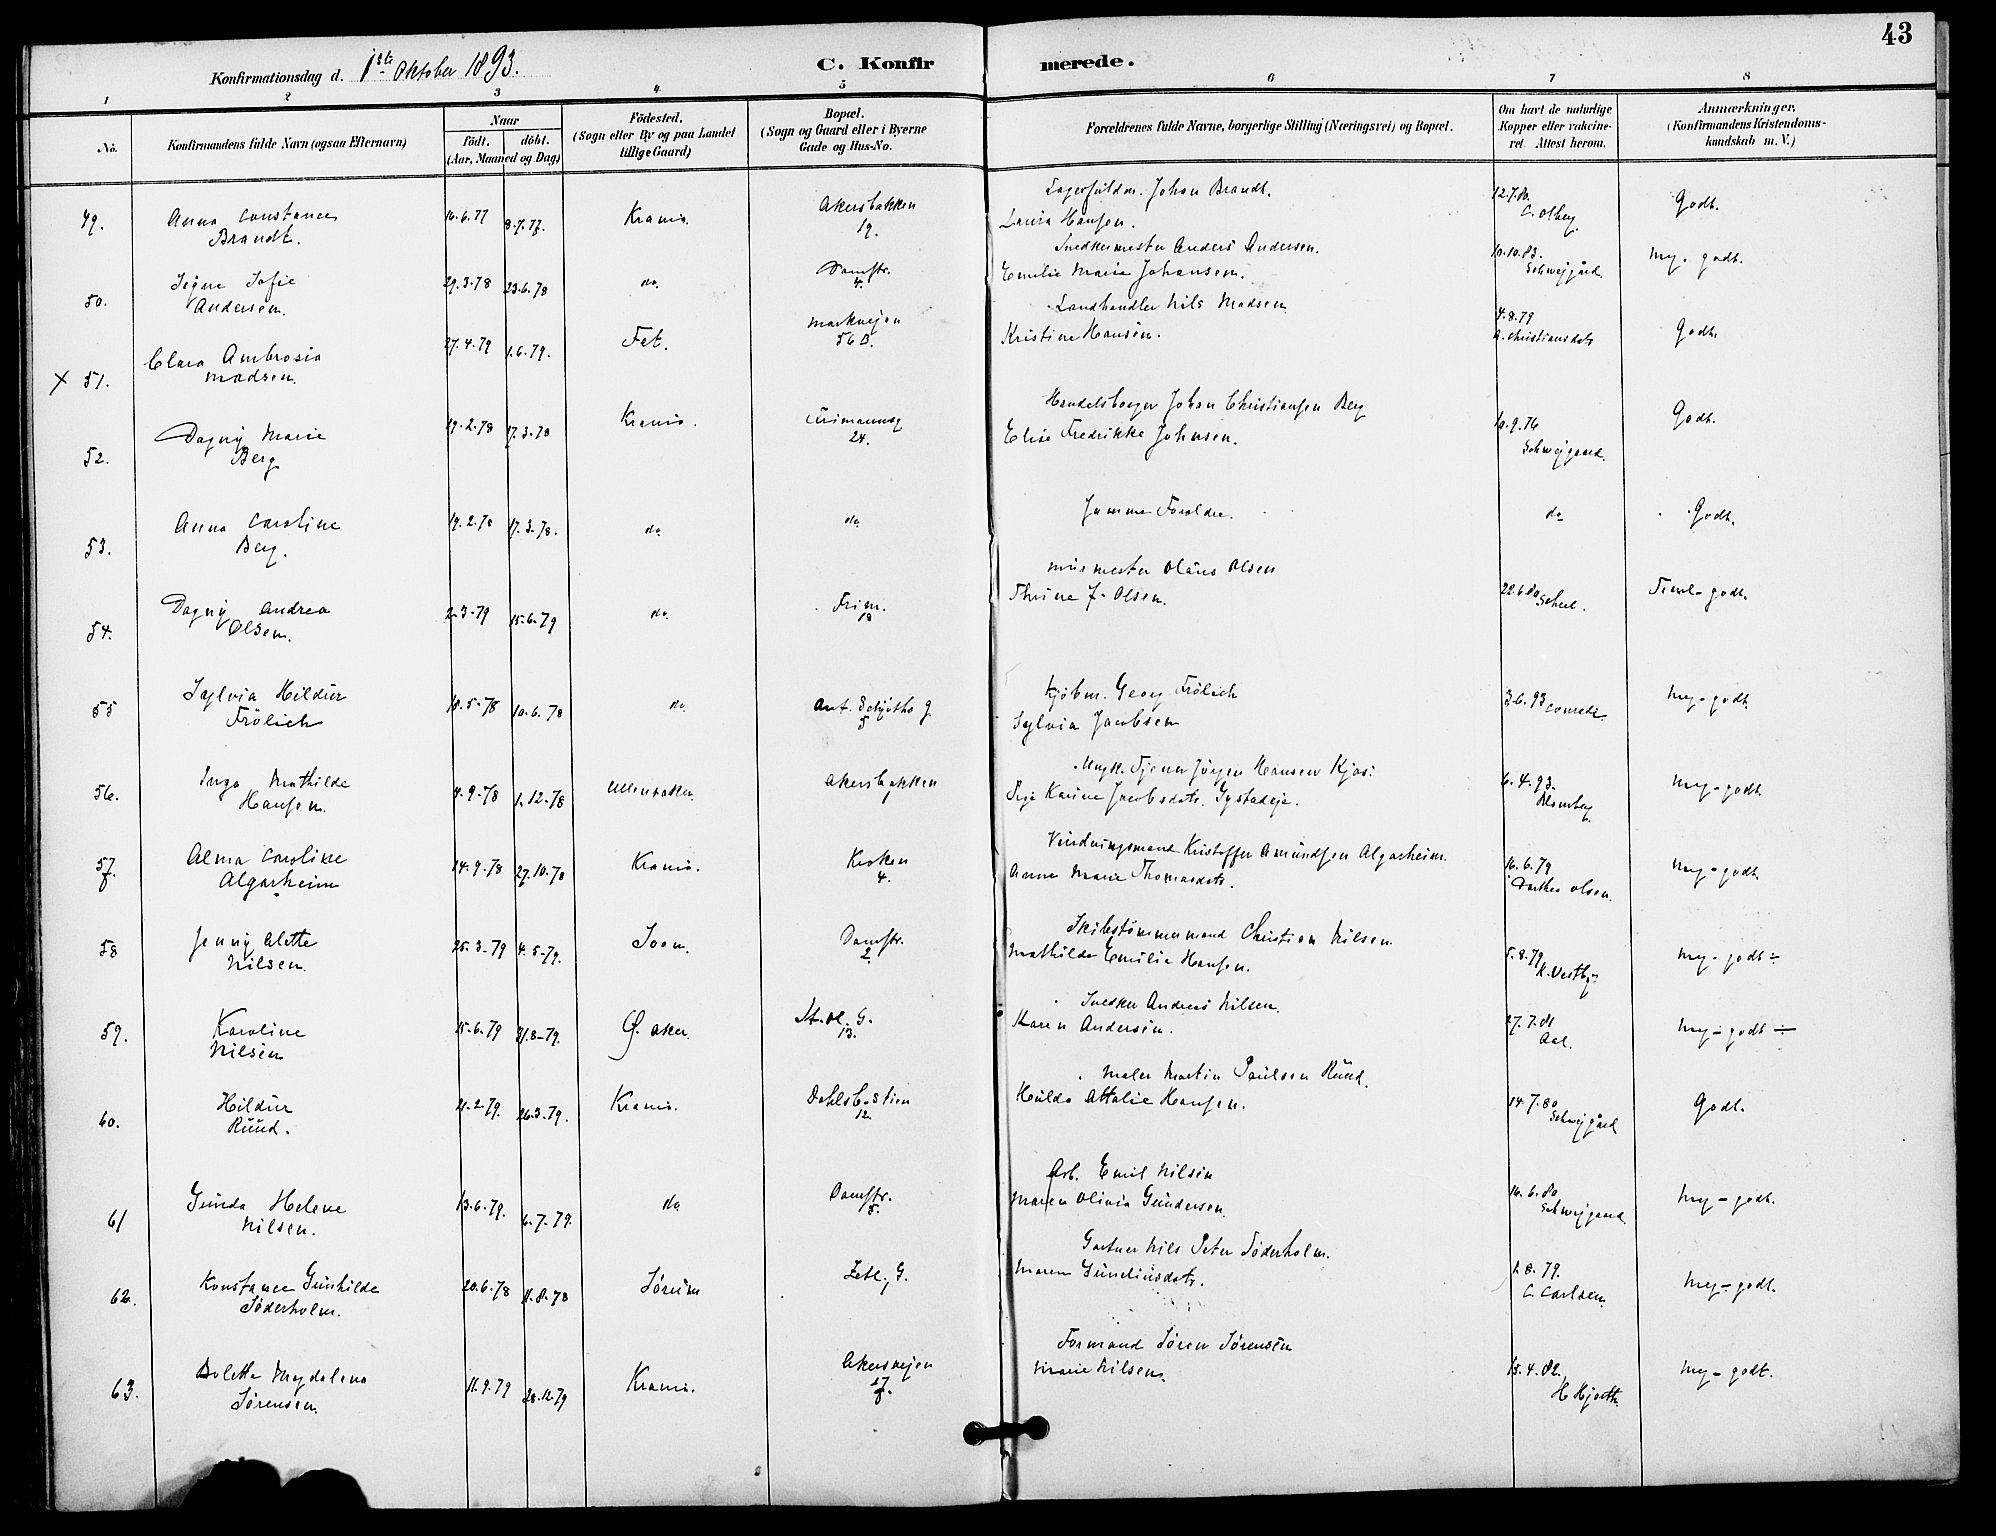 43
Konfirmationsdag d. 1ste Oktober 1893.
C. Konfirmerede.
1 2 3 4 5 6 7 8
No.
Konfirmandens fulde Navn (ogsaa Efternavn)
Naar
født. døbt.
(Aar, Maaned og Dag)
Fødested.
(Sogn eller By og paa Landet
tillige Gaard)
Bopæl.
(Sogn og Gaard eller i Byerne
Gade og Hus-No.
Forældrenes fulde Navne, borgerlige Stilling (Næringsvei) og Bopæl.
Om havt de naturlige
Kopper eller vakcine-
ret. Attest herom.
Anmærkninger.
(Konfirmandens Kristendoms-
kundskab m. V.)
49. Anna Constance 16.6.77 8.7.77. Krania. Akersbakken Johan Brandt. 12.7.80. Godt.
Brandt. 19. Laura Hansen. C. Olberg.
50. Signe Sofie 29.3.78 23.6.78 do. Damstr. Snedkermester Anders Andersen. 10.10.83. Mg. godt.
Andersen. 4. Emilie Marie Johansen. Schwejgård.
X 51. Clara Ambrosia 27.4.79 1.6.79. Fet. Markvejen Landhandler Nils Madsen 4.8.79 Godt.
Madsen. 56 B. Kristine Hansen. Christiansdatr
52. Dagny Marie 19.2.78 17.3.78 Krania. 24. Handelsborger Johan Christiansen Berg Godt.
Berg Elise Fredrikke Johnsen. Schwejgaard.
53. Anna Caroline 19.2.78 17.3.78. do. do. Samme Foreldre. do Godt.
Berg.
54. Dagny Andrea 2.3.79 15.6.79 do. Frim. Murmester Olaus Olsen 22.6.80 Scheel. Temel. godt.
Olsen. 18 Thrine J. Olsen.
55 Sylvia Hildur 18.5.78 10.6.78 do. Ant. Schjøths g. Kjøbm. Georg Frölich 3.6.93 Conradi. Mg. godt.
Frölich 5 Sylvia Jacobsen
56. Inga Mathilde 4.9.78 1.12.78 Ullensaker. Akersbakken Jørgen Hansen Kjos: 6.4.93. Mg. godt.
Hansen. 1 Karine Jacobsdatr. Blomberg
57. Alma Caroline 14.9.78 27.10.78 Krania. Kroken Kristoffer Amundsen Algarheim. 16.6.79 Mg. godt.
Algarheim 4. Anne Marie Thomasdatr. Olsen.
58 Jenny Alette 25.3.79 4.5.79. Soon. Damstr. Skibstømmermand Christian Nilsen. 5.8.79 Mg. godt ÷
Nilsen. 2. Mathilde Emilie Hansen. K. Vestby
59. Karoline 15.6.79 31.8.79. Ø. Aker. St. Ol. G. Snedker Andreas Nilsen. 27.7.81 Mg. godt ÷
Nilsen 13. Karen Andersen. Aal.
60. Hildur 21.2.79. 26.3.79. Krania. Dahlsb. Stien Maler Martin Paulsen Ruud. 14.7.80 Godt.
Ruud. 12. Hulda Attalie Hansen. Schwejgård
61 Gunda Helene 13.6.79. 6.7.79. do. Damstr. Arb. Emil Nilsen 16.6.80 Mg. godt.
Nilsen. 5. Maren Olivia Gundersen. Schwejgaard
62. Konstance Gunhilde 20.6.78 11.8.78 Sørum Zetl. G. Gartner Nils Peter Söderholm. 1.8.79. Mg. godt.
Söderholm. Maren C. Carlsen.
63. Bolette Magdalena 11.9.79 26.12.79 Krania. Akersvejen Formand Sören Sørensen 15.4.82. Mg. godt.
Sørensen. 17 Marie Nilsen. H Hjorth